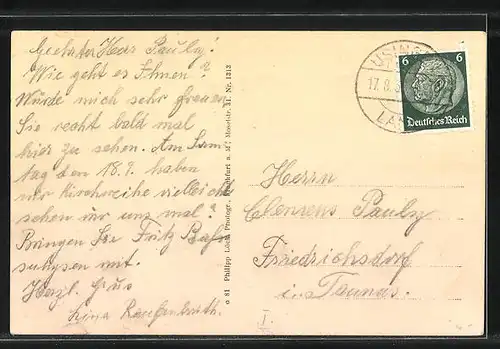 Geehrter Herr Pauly!
Wie geht es Ihnen?
Würde mich sehr freuen
Sie recht bald mal
hier zu sehen. Am Sonn-
tag den 18.9. haben
wir Kirchweihe vielleicht
sehen wir uns mal?
Bringen Sie Fritz
mit.
Herzl. Grus
Lina
o 81 Philipp Loch, Photogr., Frankfurt a. M., Moselstr. 31. Nr. 1313
USING
17.8.3
LA
6 6
Deutsches Reich
Herrn
Clemens Pauly
Friedrichsdorf
im Taunus.
I.